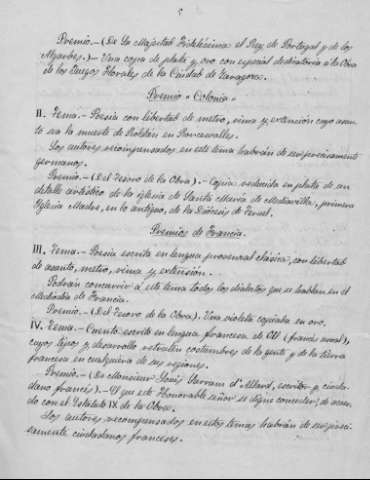 Premio.-(De La Majestad Fidelísima el Rey de Portugal y de los
Algarbes).- Una copa de plata y oro con especial dedicatoria á la Obra
de los Juegos Florales de la Ciudad de Zaragoza.
Premio "Colonia"
II. Tema.- Poesía con libertad de metro, rima y extensión cuyo asun-
to sea la muerte de Roldán en Roncesvalles.
Los autores recompensados en este tema habrán de ser precisamente
germanos.
Premio.-(Del Tesoro de la Obra).- Copia reducida en plata de un
detalle artístico de la iglesia de Santa María de Mediavilla, primera
Iglesia Madre, en lo antiguo, de la Diócesis de Teruel.
Premios de Francia.
III. Tema.- Poesía escrita en lengua provenzal clásica, con libertad
de asunto, metro, rima y extensión.
Podrán concurrir á este tema todos los dialectos que se hablan en el
Mediodía de Francia.
Premio.-(Del Tesoro de la Obra). Una violeta copiada en oro.
IV. Tema.- Cuento escrito en lengua francesa de (francés rural),
cuyos tipos y desarrollo retraten costumbres de la gente y de la tierra
francesa en cualquiera de sus regiones.
Premio.-(De Monsieur d'Allard, escritor y ciuda-
dano francés).- El que este Honorable señor se digne conceder; de acuer-
do con el Estatuto IX de la Obra.
Los autores recompensados en estos temas habrán de ser preci-
samente ciudadanos franceses.